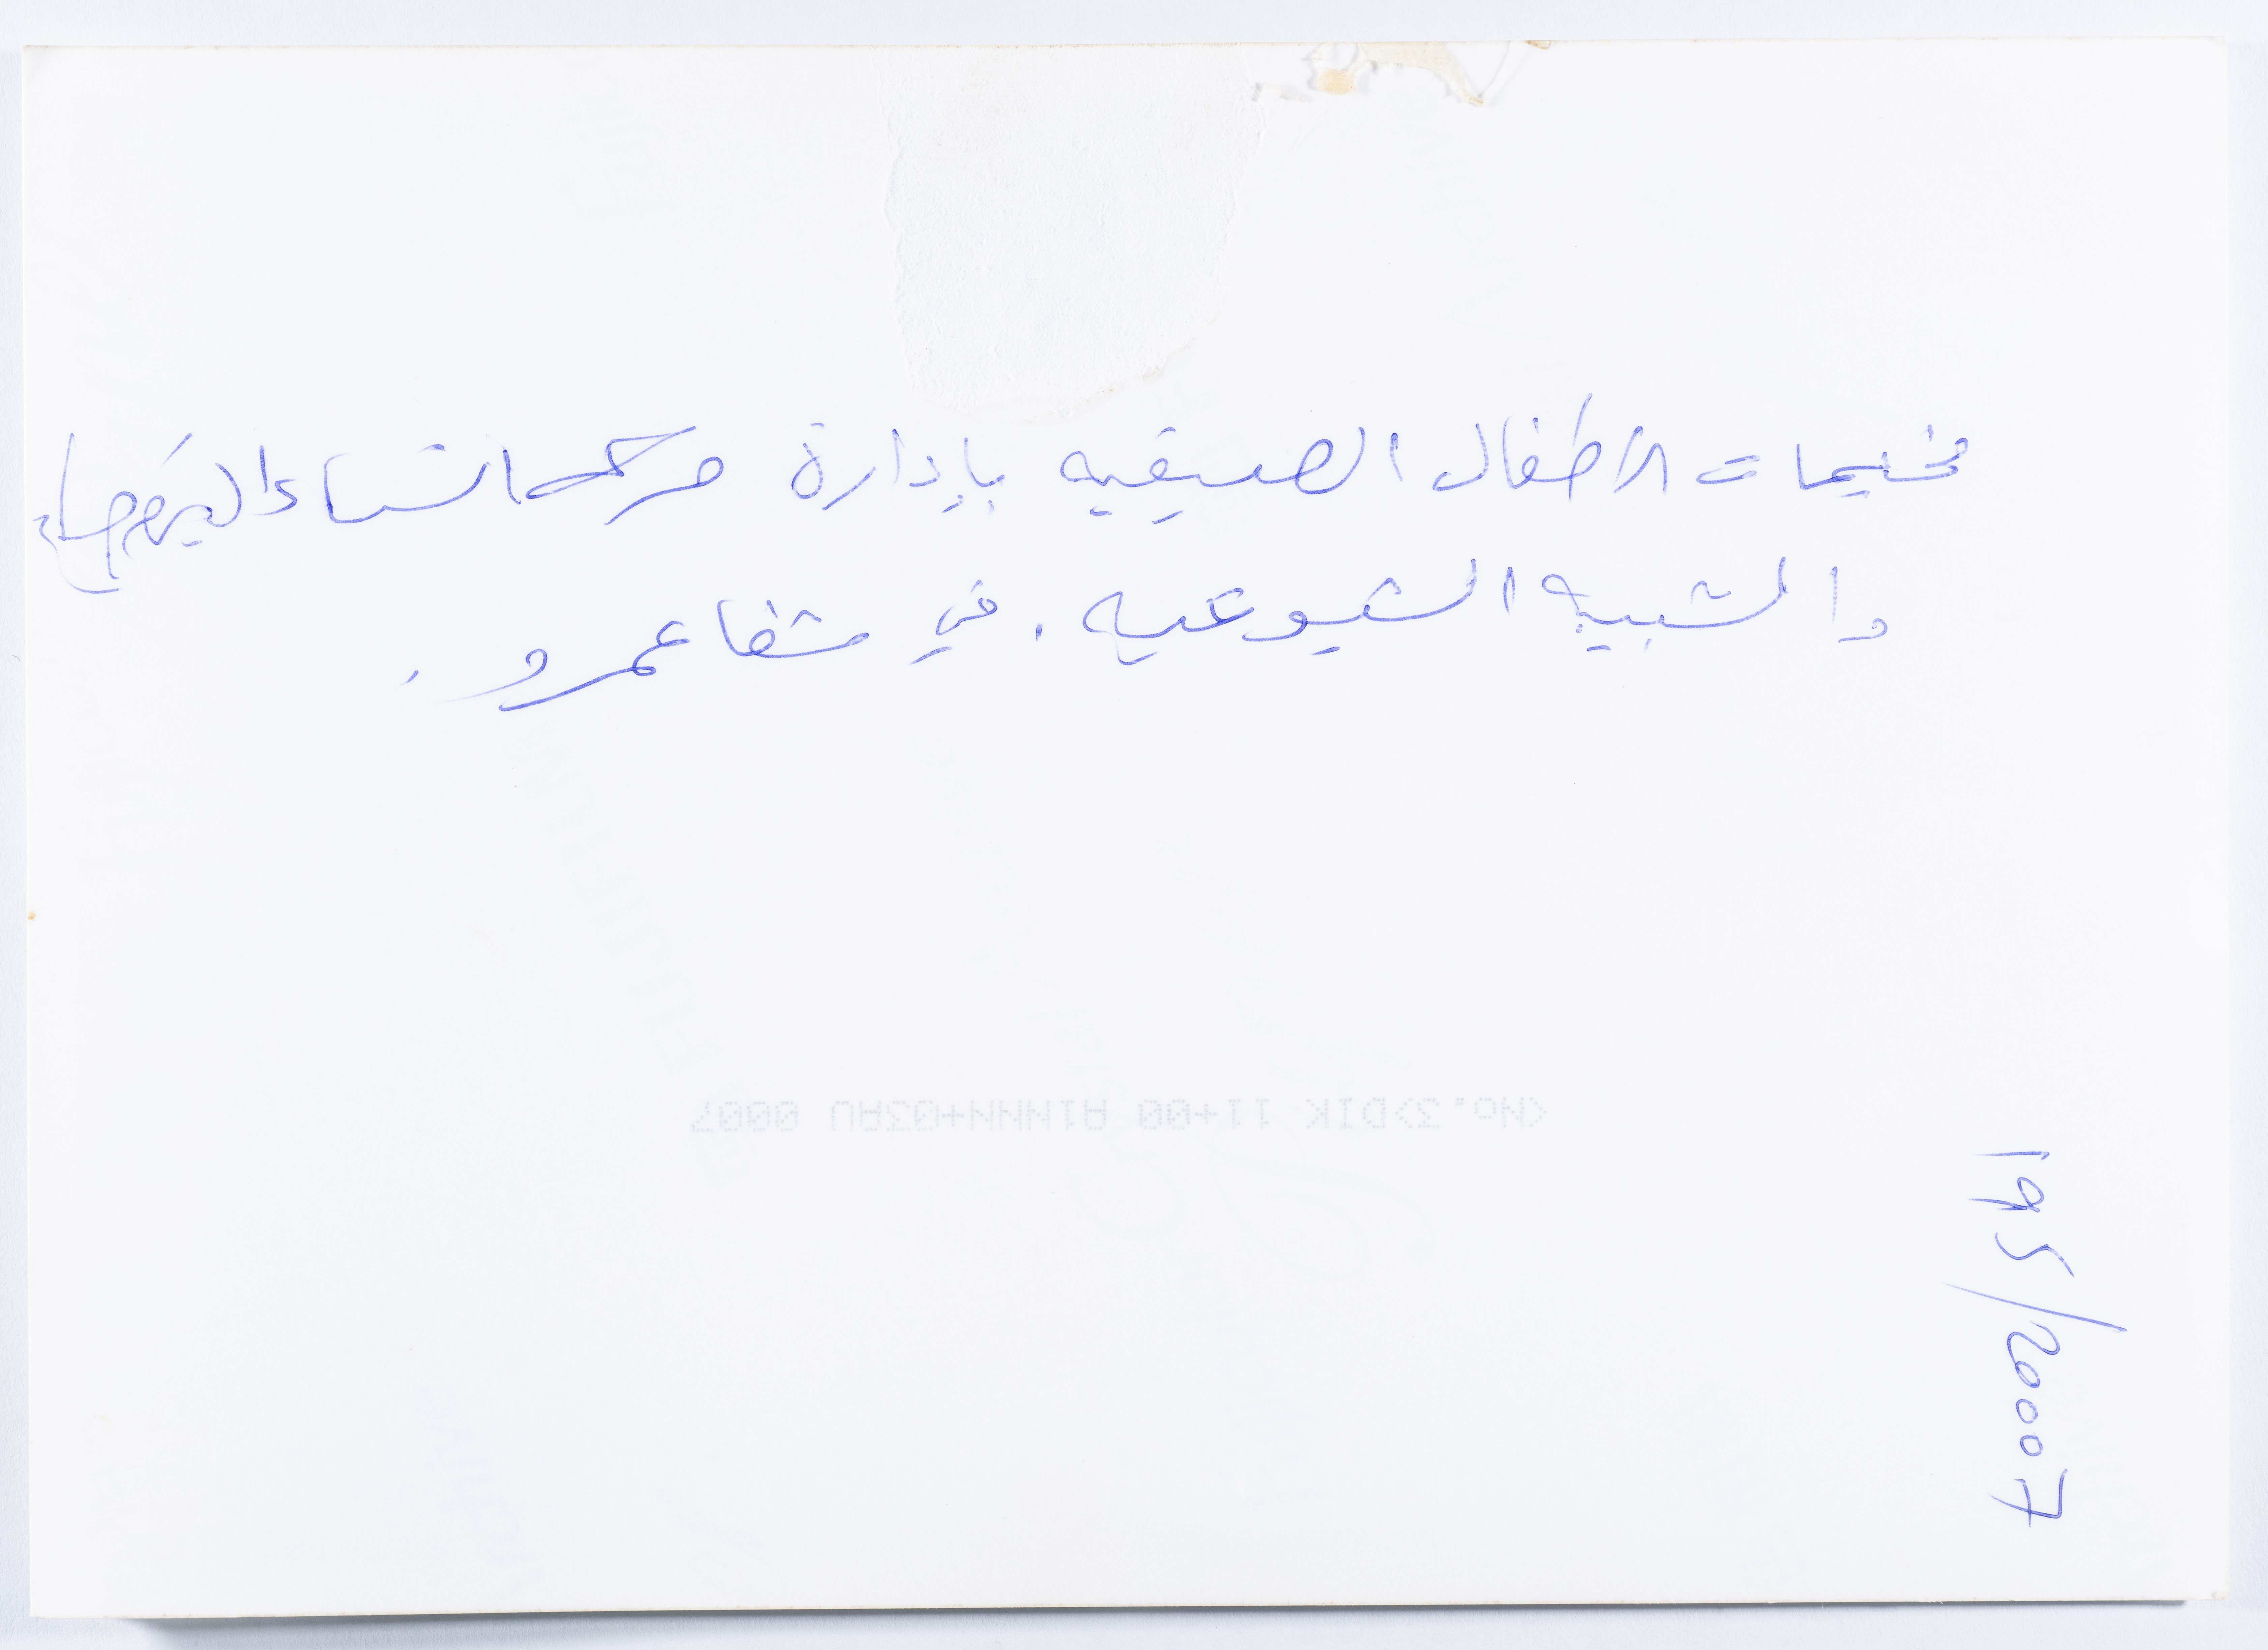 مخيمات الأطفال الصيفيه بإدارة حركة النساء الديمقراطيات
والشبيبه الشيوعيه. في شفاعمرو.
<No.3>DIK 11+00 AINNN+03AU 0007
195/2007